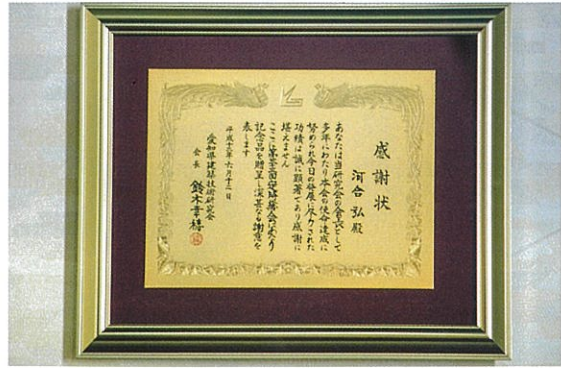 感謝状
河合弘殿
あなたは当研究会の会長として
多年にわたり本会の使命達成に
努められ今日の発展に尽力された
功績は誠に顕著であり感謝に
堪えません
ここに第三十回定時総会にあたり
記念品を贈呈し深甚なる謝意を
表します
平成十六年六月十三日
愛知県建築技術研究会
会長 鈴木幸